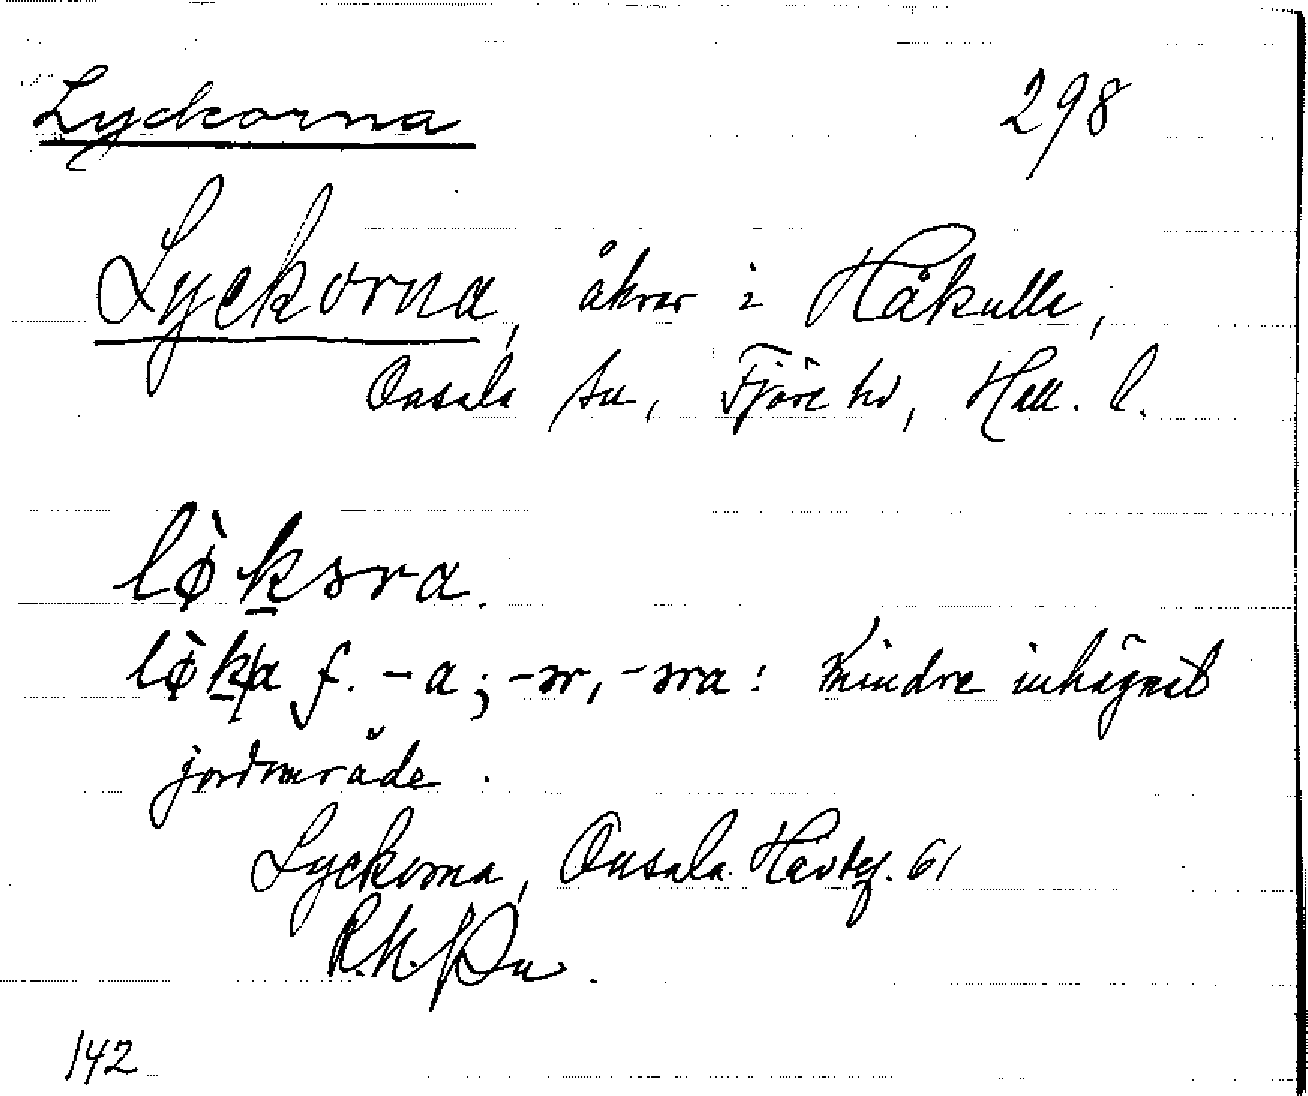 Lyckorna 298
Lyckorna, åkrar i Håkulle,
Onsala sn, Fjäre hd, Hall. l.
lø̀kəra.
lø̀ka f. -a; -ər, -əra: mindre inhägnat
jordområde.
Lyckorna, Onsala. 61
142